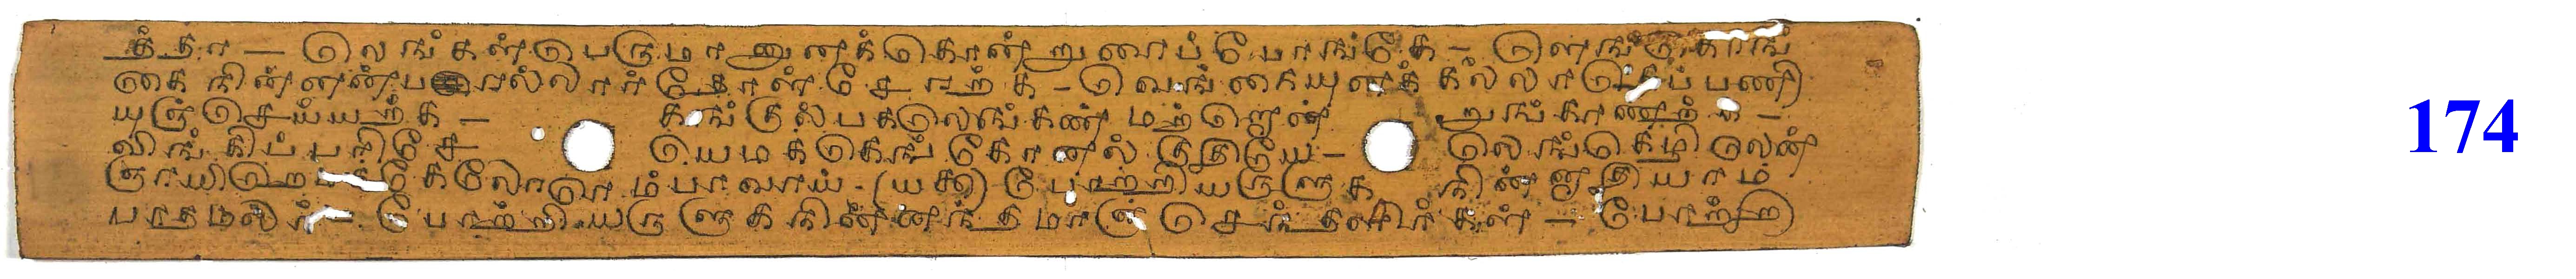 த்தா — லெங்கள்பெருமானுனக்கொன்றுரைப்போங்கே — ளெங்கொங்
கை நின்னன்பரல்லார்தோள்சேரற்க — வெங்கையுனக்கல்லாதெப்பணி
யுஞ்செய்யற்க — கங்குல்பகலெங்கண் மற்றொன்றுங்காணற்க —
விங்கிப்பரிசே யெமக்கெங்கோனல்குதியே — லெங்கெழிலென்
ஞாயிறெமக்கேலோரெம்பாவாய் — (௰௯) போற்றியருளுக நின்னாதியாம்
பாதமலர் — போற்றியருளுகநின்னந்தமாஞ்செந்தளிர்கள் — போற்றி
174